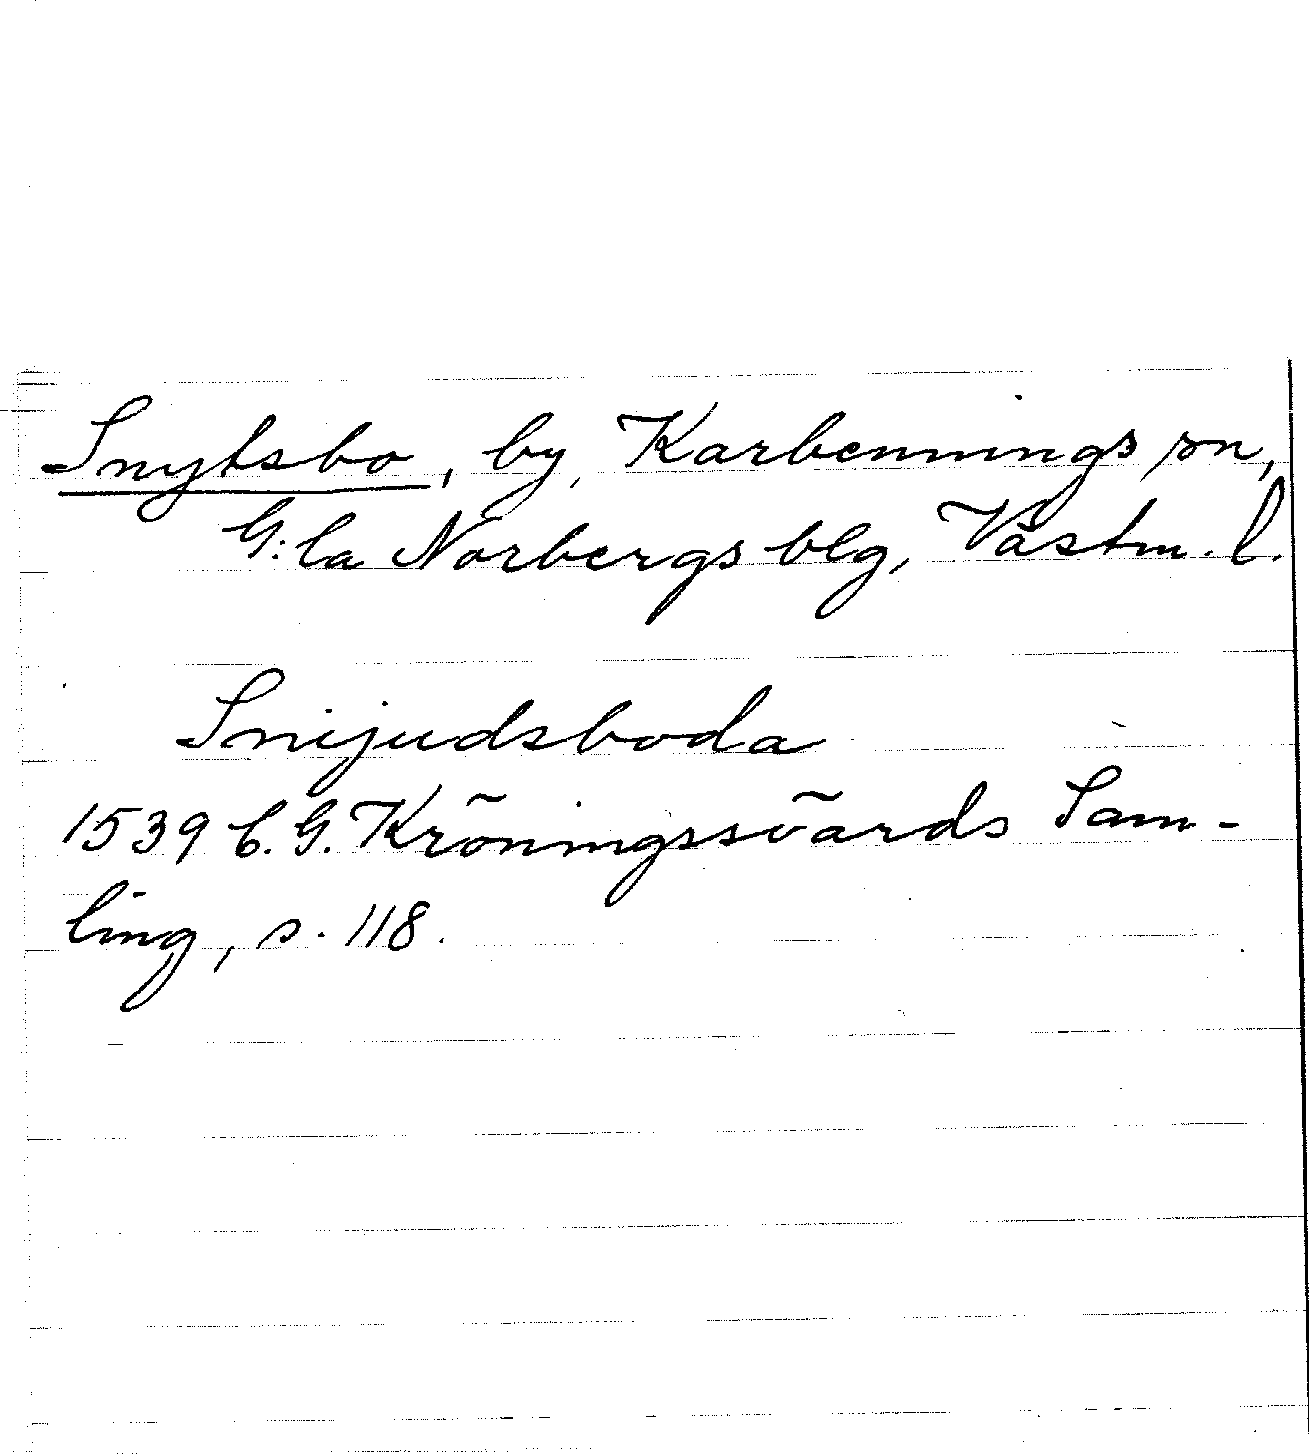 Snytsbo, by, Karbennings sn,
G:la Norbergs blg, Västm. l.
Snijudsboda
1539 C. G. Kröningssvärds Sam-
ling, s. 118.